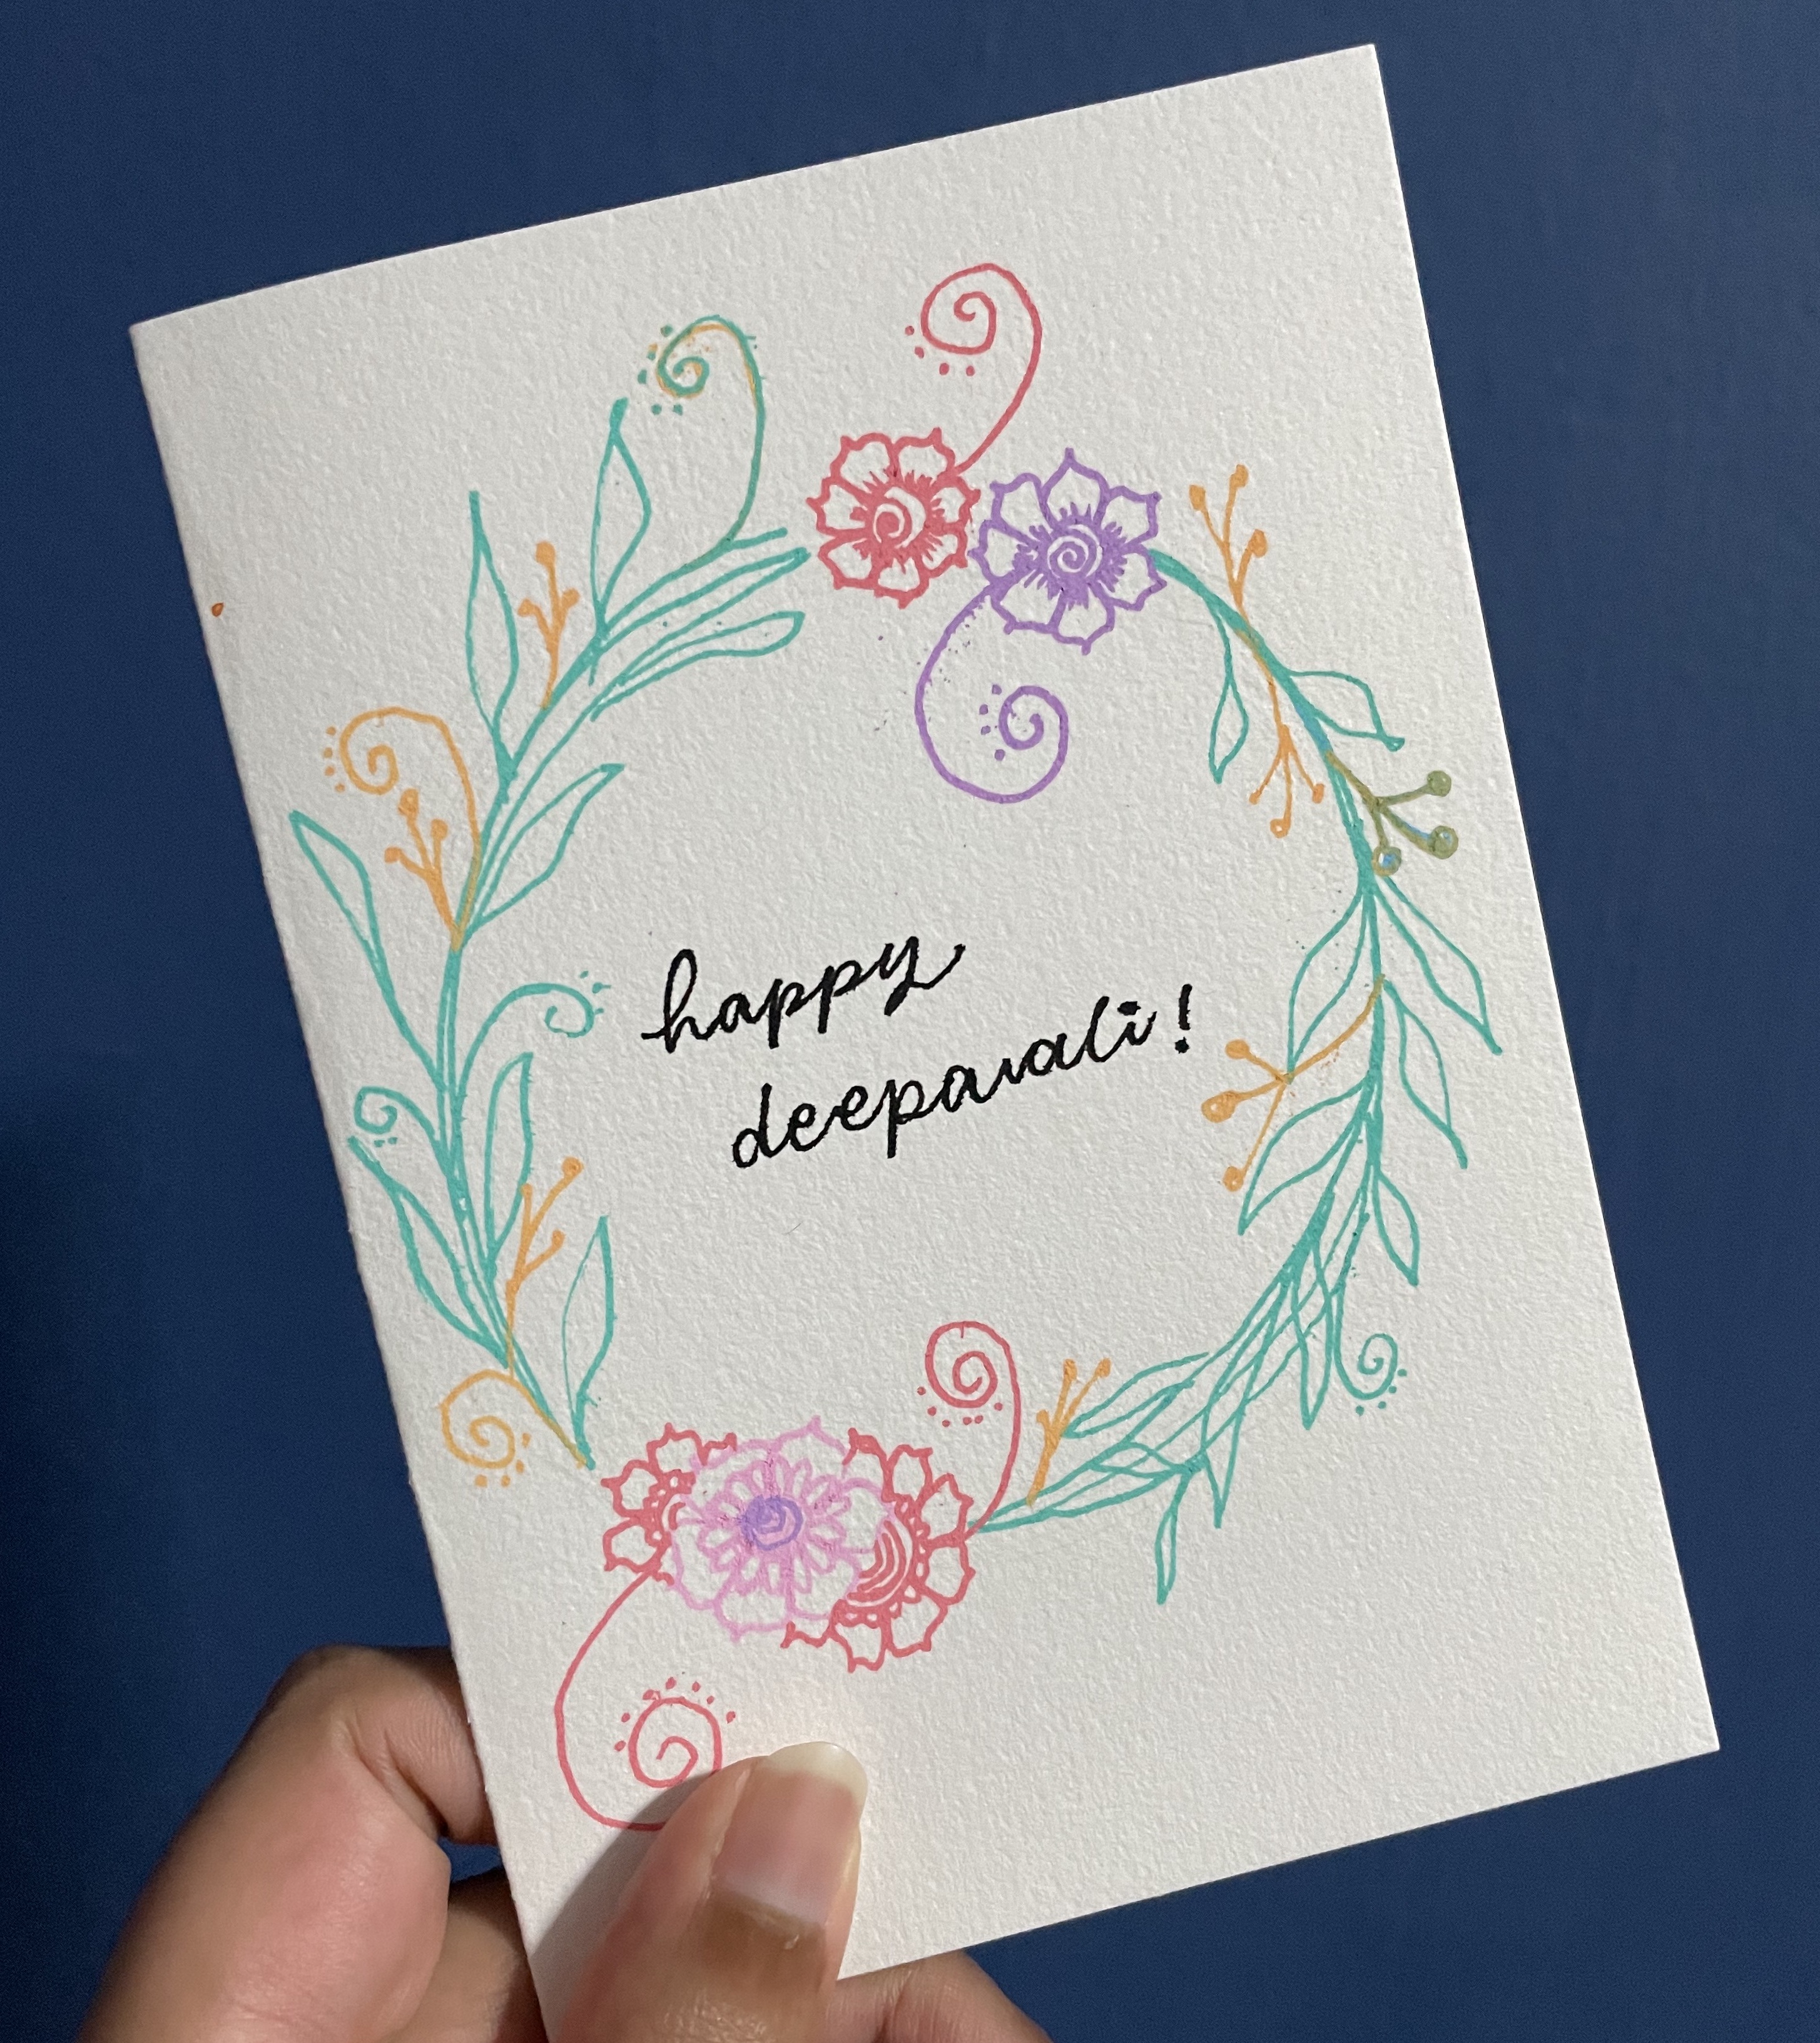 happy
deepavali!